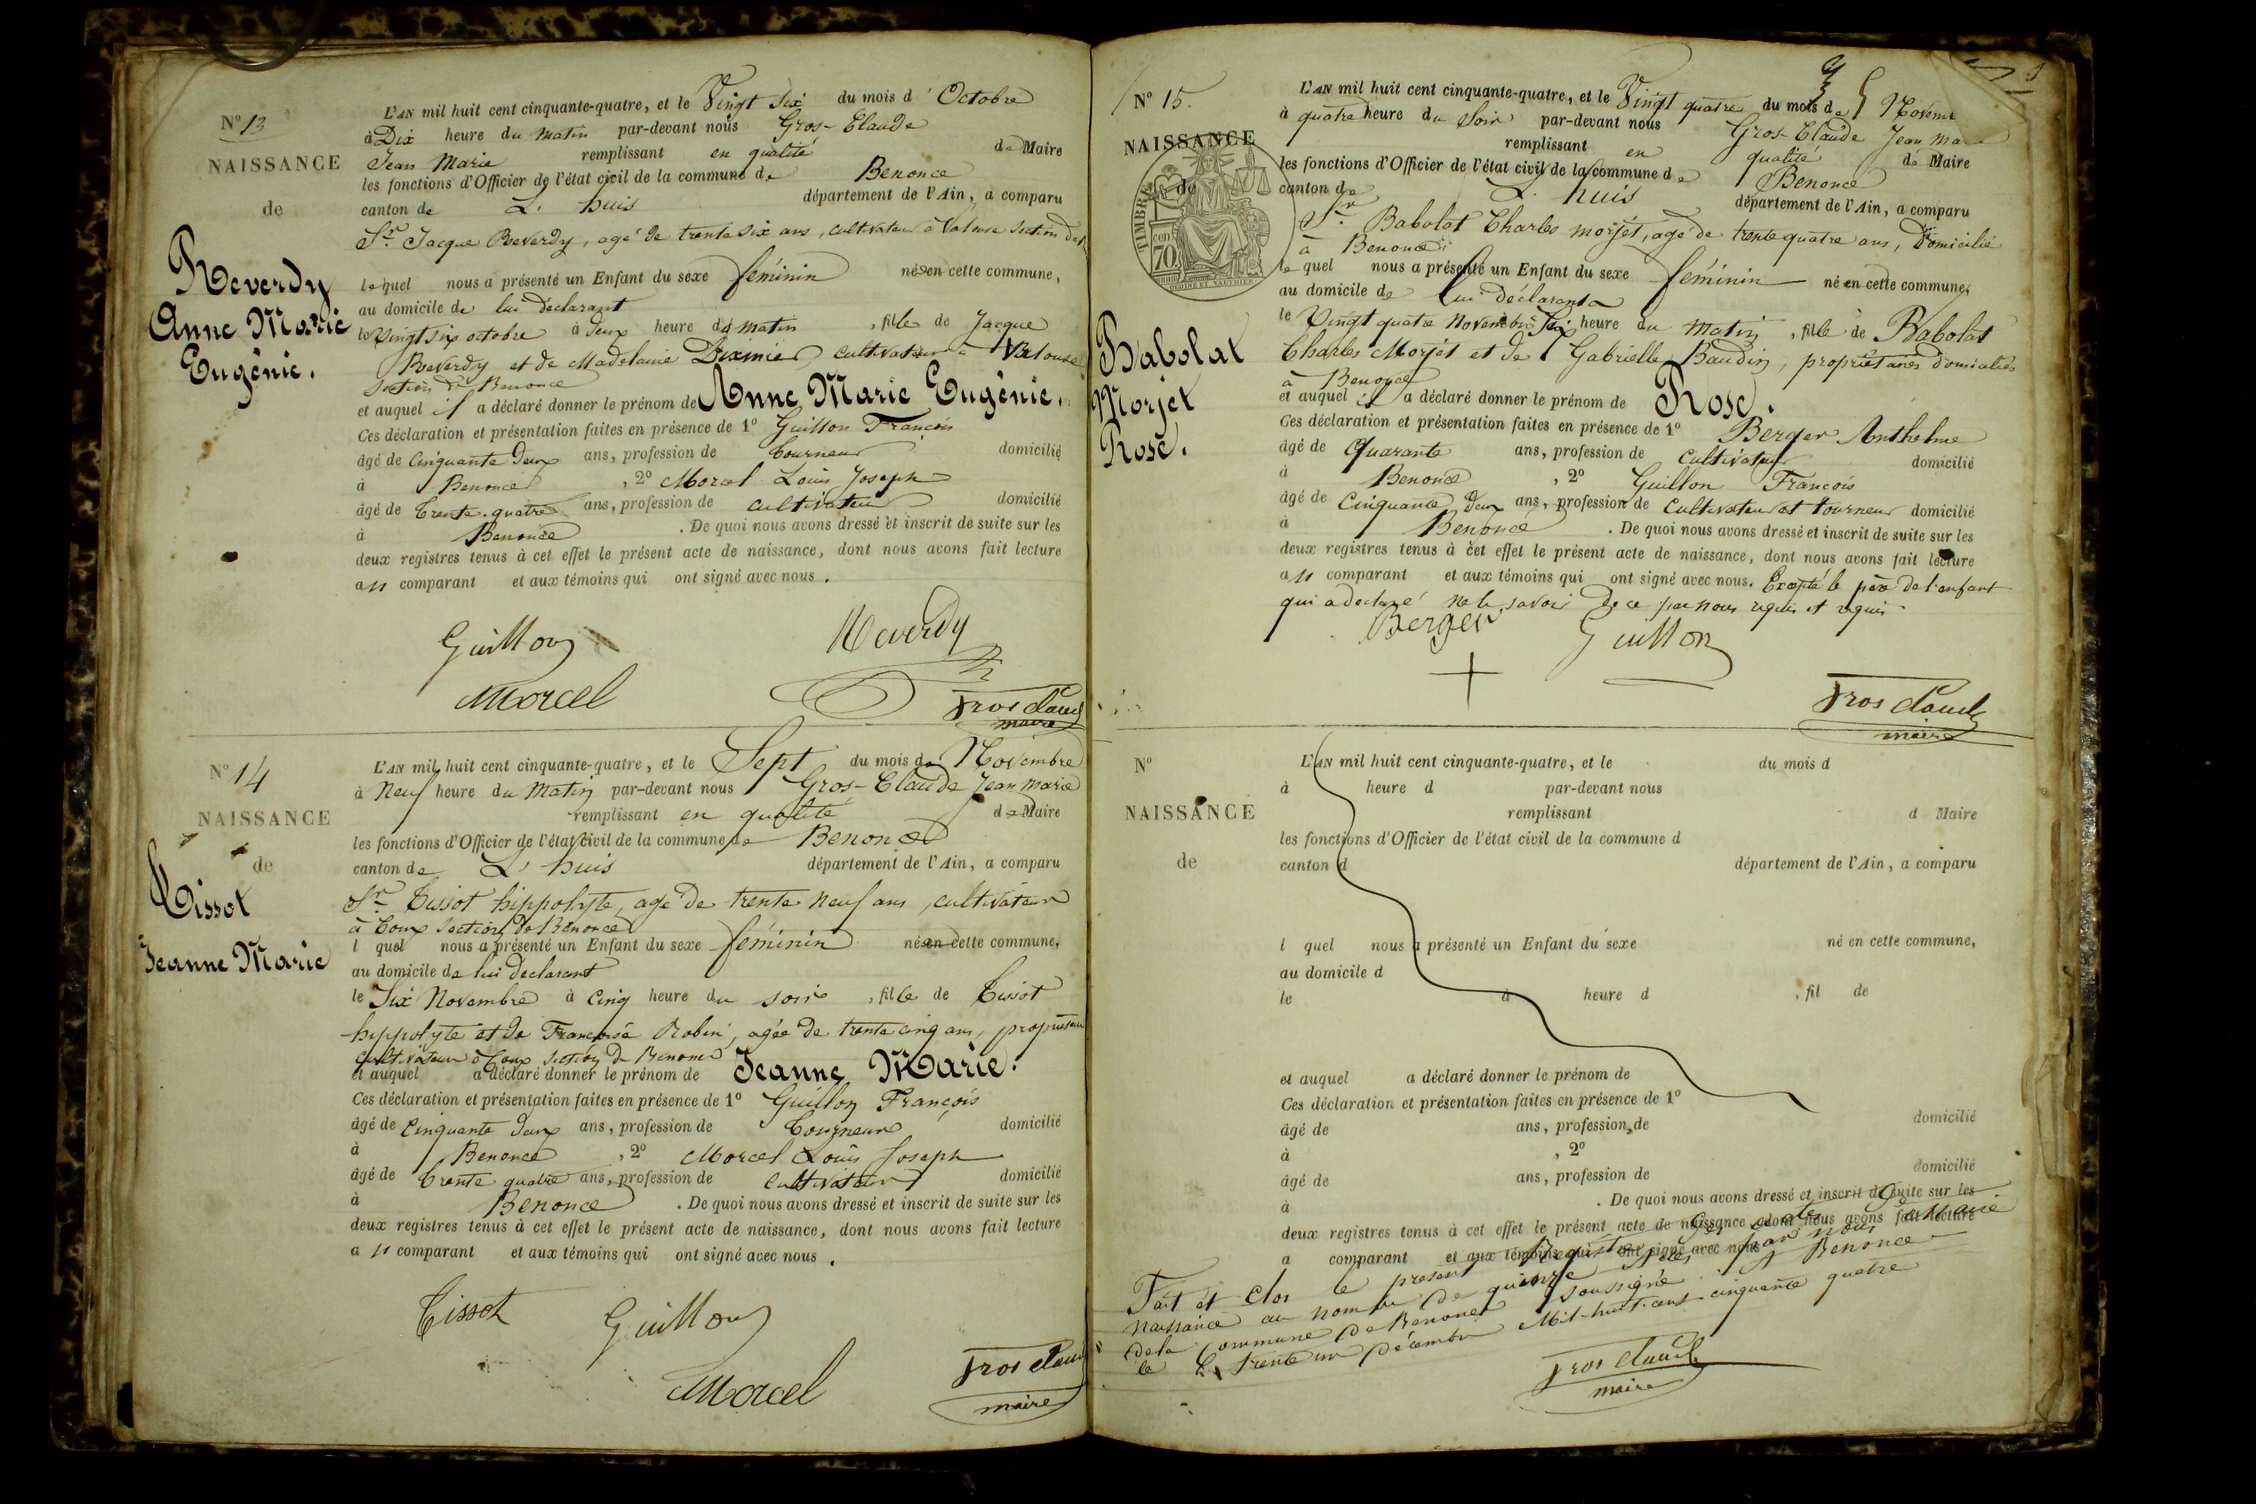 N° 13
NAISSANCE
de
Reverdy
Anne Marie
Eugénie.
L'AN mil huit cent cinquante-quatre, et le Vingt Six du mois d' Octobre
à Dix heure du matin par-devant nous Gros-Claude
Jean Marie remplissant en qualité de Maire
les fonctions d'Officier de l'état civil de la commune de Benonce
canton de L'huis département de l'Ain, a comparu
Sr. Jacque Reverdy, agé de trente six ans, cultivateur à Valouse section de
lequel nous a présenté un Enfant du sexe féminin né en cette commune,
au domicile de lui déclarant
le Vingt six octobre à deux heure du matin, fille de Jacque
Reverdy et de Madelaine cultivateur à Valouse
section de Benonce
et auquel il a déclaré donner le prénom de Anne Marie Eugénie.
Ces déclaration et présentation faites en présence de 1° Guillon François
âgé de Cinquante deux ans, profession de Tourneur domicilié
à Benonce, 2° Morcel Louis Joseph
âgé de Trente-quatre ans, profession de cultivateur domicilié
à Benonce. De quoi nous avons dressé et inscrit de suite sur les
deux registres tenus à cet effet le présent acte de naissance, dont nous avons fait lecture
au comparant et aux témoins qui ont signé avec nous.
Guillon Reverdy
Morcel Gros Claude
maire
N° 14
NAISSANCE
de
Tissot
Jeanne Marie
L'AN mil huit cent cinquante-quatre, et le Sept du mois de Novembre
à Neuf heure du Matin par-devant nous Gros-Claude Jean Marie
remplissant en qualité de Maire
les fonctions d'Officier de l'état civil de la commune de Benonce
canton de L'huis département de l'Ain, a comparu
Sr. Tissot hippolyte, agé de trente neuf ans, cultivateur
à Coux section de Benonce
l quel nous a présenté un Enfant du sexe féminin né en cette commune,
au domicile de lui déclarant
le Six Novembre à Cinq heure du soir, fille de Tissot
hippolyte et de Françoise Robin, agée de trente cinq ans, propriétaire
cultivateur à Coux section de Benonce
et auquel a déclaré donner le prénom de Jeanne Marie.
Ces déclaration et présentation faites en présence de 1° Guillon François
âgé de Cinquante deux ans, profession de Tourneur domicilié
à Benonce, 2° Morcel Louis Joseph
âgé de Trente quatre ans, profession de cultivateur domicilié
à Benonce. De quoi nous avons dressé et inscrit de suite sur les
deux registres tenus à cet effet le présent acte de naissance, dont nous avons fait lecture
au comparant et aux témoins qui ont signé avec nous.
Tissot Guillon
Morcel Gros Claude
maire
N° 15.
NAISSANCE
de
TIMBRE
cen
70
Babolat
Morjet
Rose.
L'AN mil huit cent cinquante-quatre, et le Vingt quatre du mois de Novembre
à quatre heure du Soir par-devant nous Gros-Claude Jean Marie
remplissant en qualité de Maire
les fonctions d'Officier de l'état civil de la commune de Benonce
canton de L'huis département de l'Ain, a comparu
Sr. Babolat Charles morjet, agé de trente quatre ans, Domicilié
à Benonce
le quel nous a présenté un Enfant du sexe féminin né en cette commune,
au domicile de lui déclarant
le Vingt quatre Novembre Six heure du matin, fille de Babolat
Charles Morjet et de Gabrielle Baudin, propriétaires domiciliés
à Benonce
et auquel il a déclaré donner le prénom de Rose.
Ces déclaration et présentation faites en présence de 1° Berger Anthelme
âgé de Quarante ans, profession de cultivateur domicilié
à Benonce, 2° Guillon François
âgé de Cinquante deux ans, profession de Cultivateur et tourneur domicilié
à Benonce. De quoi nous avons dressé et inscrit de suite sur les
deux registres tenus à cet effet le présent acte de naissance, dont nous avons fait lecture
au comparant et aux témoins qui ont signé avec nous. Excepté le père de l'enfant
qui a déclaré ne le savoir de ce par nous requis et requis
Berger Guillon
Gros Claude
maire
N°
NAISSANCE
de
L'AN mil huit cent cinquante-quatre, et le du mois d
à heure d par-devant nous
remplissant d Maire
les fonctions d'Officier de l'état civil de la commune d
canton d département de l'Ain, a comparu
l quel nous a présenté un Enfant du sexe né en cette commune,
au domicile d
le à heure d , fil de
et auquel a déclaré donner le prénom de
Ces déclaration et présentation faites en présence de 1°
âgé de ans, profession de domicilié
à , 2°
âgé de ans, profession de domicilié
à . De quoi nous avons dressé et inscrit de suite sur les
deux registres tenus à cet effet le présent acte de naissance, dont nous avons fait lecture
a comparant et aux témoins qui ont signé avec nous
Fait et clos le présent Registre des actes de
naissance au nombre de quinze par nous Maire
de la Commune de Benonce soussigné. à Benonce
le trente un Décembre Mil-huit-cent-cinquante quatre
Gros Claude
maire